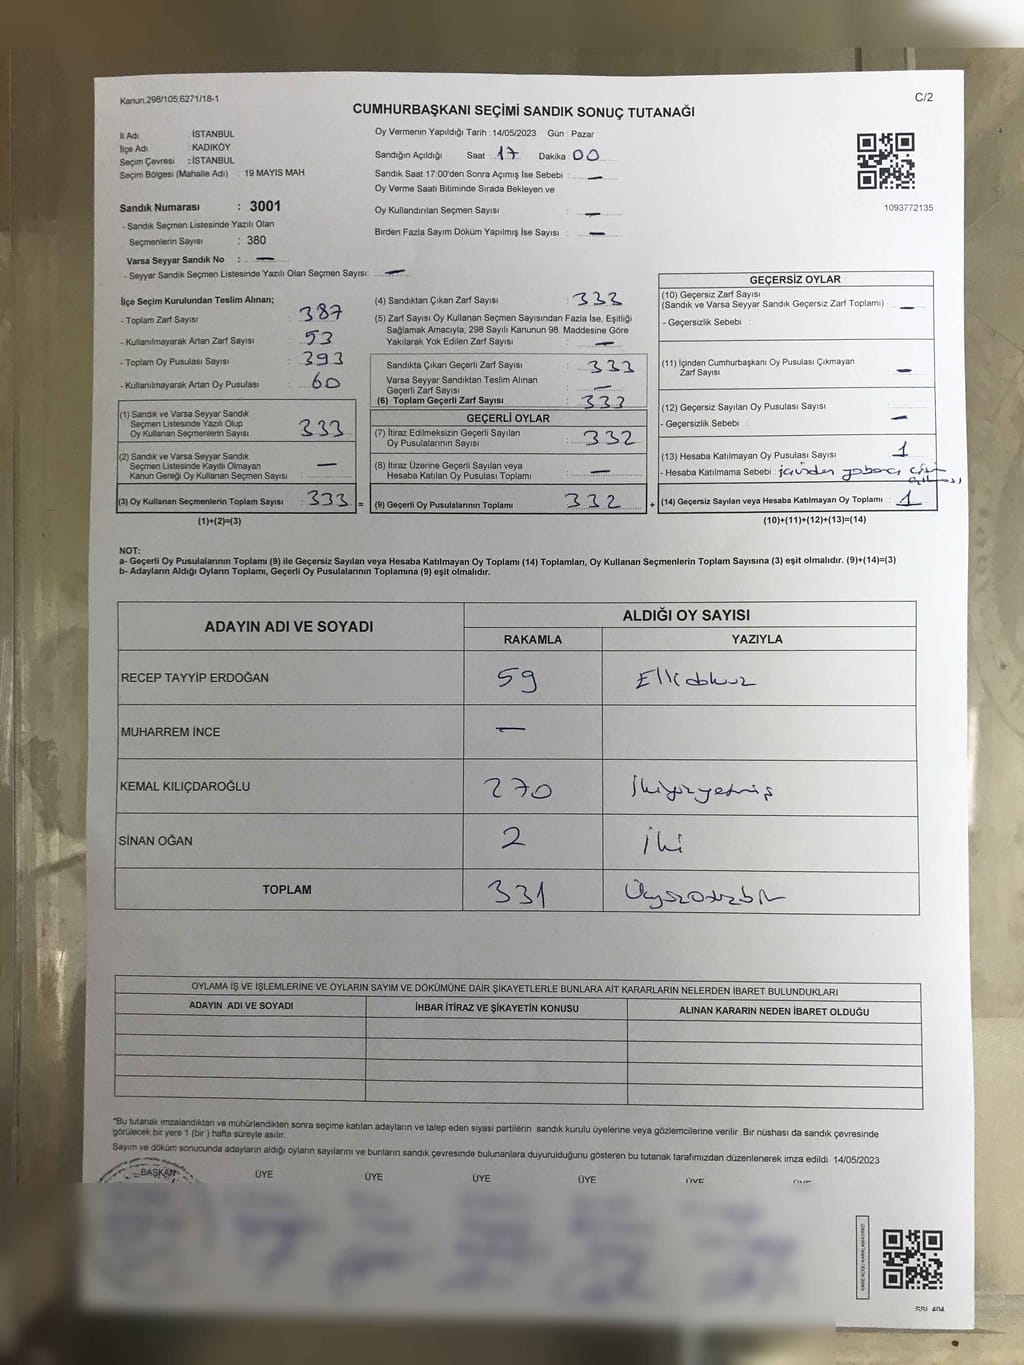 Kanun.298/105;6271/18-1
C/2
CUMHURBAŞKANI SEÇİMİ SANDIK SONUÇ TUTANAĞI
İl Adı : İSTANBUL
İlçe Adı : KADIKÖY
Seçim Çevresi : İSTANBUL
Seçim Bölgesi (Mahalle Adı) : 19 MAYIS MAH.
Sandık Numarası : 3001
- Sandık Seçmen Listesinde Yazılı Olan
Seçmenlerin Sayısı : 380
Varsa Seyyar Sandık No : —
- Seyyar Sandık Seçmen Listesinde Yazılı Olan Seçmen Sayısı: —
Oy Vermenin Yapıldığı Tarih : 14/05/2023 Gün : Pazar
Sandığın Açıldığı Saat : 17 Dakika : 00
Sandık Saat 17:00'den Sonra Açımış İse Sebebi : —
Oy Verme Saati Bitiminde Sırada Bekleyen ve
Oy Kullandırılan Seçmen Sayısı : —
Birden Fazla Sayım Döküm Yapılmış İse Sayısı : —
1093772135
İlçe Seçim Kurulundan Teslim Alınan;
- Toplam Zarf Sayısı : 387
- Kullanılmayarak Artan Zarf Sayısı : 53
- Toplam Oy Pusulası Sayısı : 393
- Kullanılmayarak Artan Oy Pusulası : 60
(1) Sandık ve Varsa Seyyar Sandık
Seçmen Listesinde Yazılı Olup
Oy Kullanan Seçmenlerin Sayısı : 333
(2) Sandık ve Varsa Seyyar Sandık
Seçmen Listesinde Kayıtlı Olmayan
Kanun Gereği Oy Kullanan Seçmen Sayısı : —
(3) Oy Kullanan Seçmenlerin Toplam Sayısı : 333 =
(1)+(2)=(3)
(4) Sandıktan Çıkan Zarf Sayısı : 333
(5) Zarf Sayısı Oy Kullanan Seçmen Sayısından Fazla İse, Eşitliği
Sağlamak Amacıyla; 298 Sayılı Kanunun 98. Maddesine Göre
Yakılarak Yok Edilen Zarf Sayısı : —
Sandıkta Çıkan Geçerli Zarf Sayısı : 333
Varsa Seyyar Sandıktan Teslim Alınan
Geçerli Zarf Sayısı : —
(6) Toplam Geçerli Zarf Sayısı : 333
GEÇERLİ OYLAR
(7) İtiraz Edilmeksizin Geçerli Sayılan
Oy Pusulalarının Sayısı : 332
(8) İtiraz Üzerine Geçerli Sayılan veya
Hesaba Katılan Oy Pusulası Toplamı : —
(9) Geçerli Oy Pusulalarının Toplamı : 332 +
GEÇERSİZ OYLAR
(10) Geçersiz Zarf Sayısı
(Sandık ve Varsa Seyyar Sandık Geçersiz Zarf Toplamı) : —
- Geçersizlik Sebebi :
(11) İçinden Cumhurbaşkanı Oy Pusulası Çıkmayan
Zarf Sayısı : —
(12) Geçersiz Sayılan Oy Pusulası Sayısı : —
- Geçersizlik Sebebi :
(13) Hesaba Katılmayan Oy Pusulası Sayısı : 1
- Hesaba Katılmama Sebebi : içinden yabancı
(14) Geçersiz Sayılan veya Hesaba Katılmayan Oy Toplamı : 1
(10)+(11)+(12)+(13)=(14)
NOT:
a- Geçerli Oy Pusulalarının Toplamı (9) ile Geçersiz Sayılan veya Hesaba Katılmayan Oy Toplamı (14) Toplamları, Oy Kullanan Seçmenlerin Toplam Sayısına (3) eşit olmalıdır. (9)+(14)=(3)
b- Adayların Aldığı Oyların Toplamı, Geçerli Oy Pusulalarının Toplamına (9) eşit olmalıdır.
ADAYIN ADI VE SOYADI
ALDIĞI OY SAYISI
RAKAMLA YAZIYLA
RECEP TAYYİP ERDOĞAN 59 Ellidokuz
MUHARREM İNCE —
KEMAL KILIÇDAROĞLU 270 İkiyüzyetmiş
SİNAN OĞAN 2 İki
TOPLAM 331 Üçyüzotuzbir
OYLAMA İŞ VE İŞLEMLERİNE VE OYLARIN SAYIM VE DÖKÜMÜNE DAİR ŞİKAYETLERLE BUNLARA AİT KARARLARIN NELERDEN İBARET BULUNDUKLARI
ADAYIN ADI VE SOYADI İHBAR İTİRAZ VE ŞİKAYETİN KONUSU ALINAN KARARIN NEDEN İBARET OLDUĞU
*Bu tutanak imzalandıktan ve mühürlendikten sonra seçime katılan adayların ve talep eden siyasi partilerin sandık kurulu üyelerine veya gözlemcilerine verilir. Bir nüshası da sandık çevresinde
görülecek bir yere 1 (bir) hafta süreyle asılır.
Sayım ve döküm sonucunda adayların aldığı oyların sayılarını ve bunların sandık çevresinde bulunanlara duyurulduğunu gösteren bu tutanak tarafımızdan düzenlenerek imza edildi. 14/05/2023
BAŞKAN ÜYE ÜYE ÜYE ÜYE ÜYE ÜYE